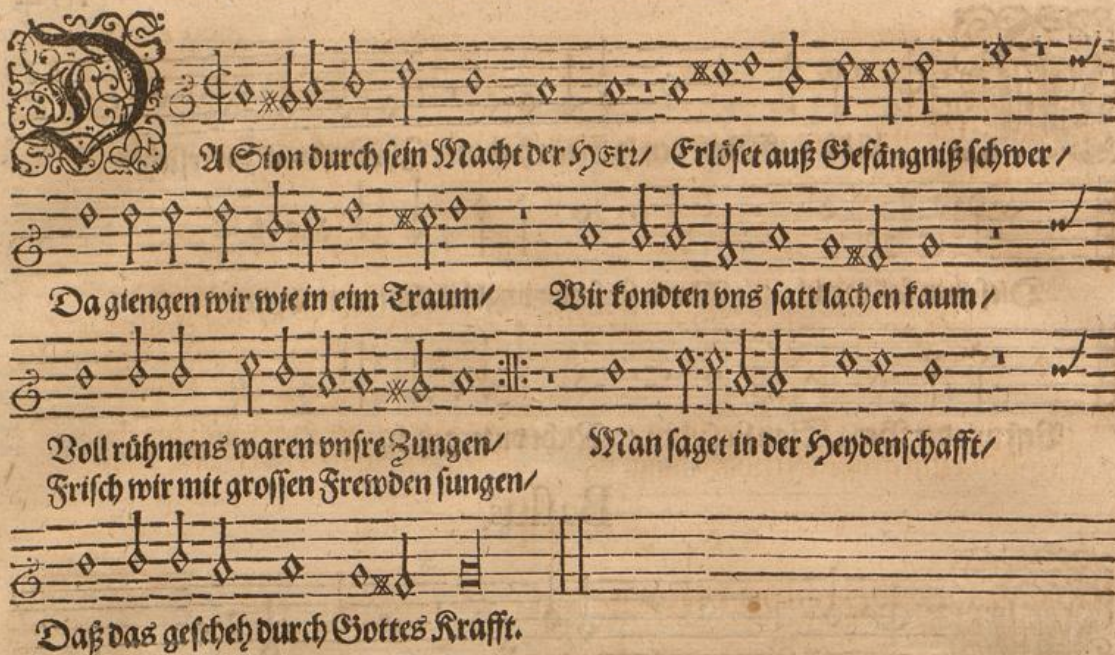 DA Sion durch sein Macht der HErr/ Erlöset auß Gefängniß schwer/
Da giengen wir wie in eim Traum/ Wir kondten vns satt lachen kaum/
Voll rühmens waren vnsre Zungen/ Man saget in der Heydenschafft/
Frisch wir mit grossen Frewden sungen/
Daß das gescheh durch Gottes Krafft.